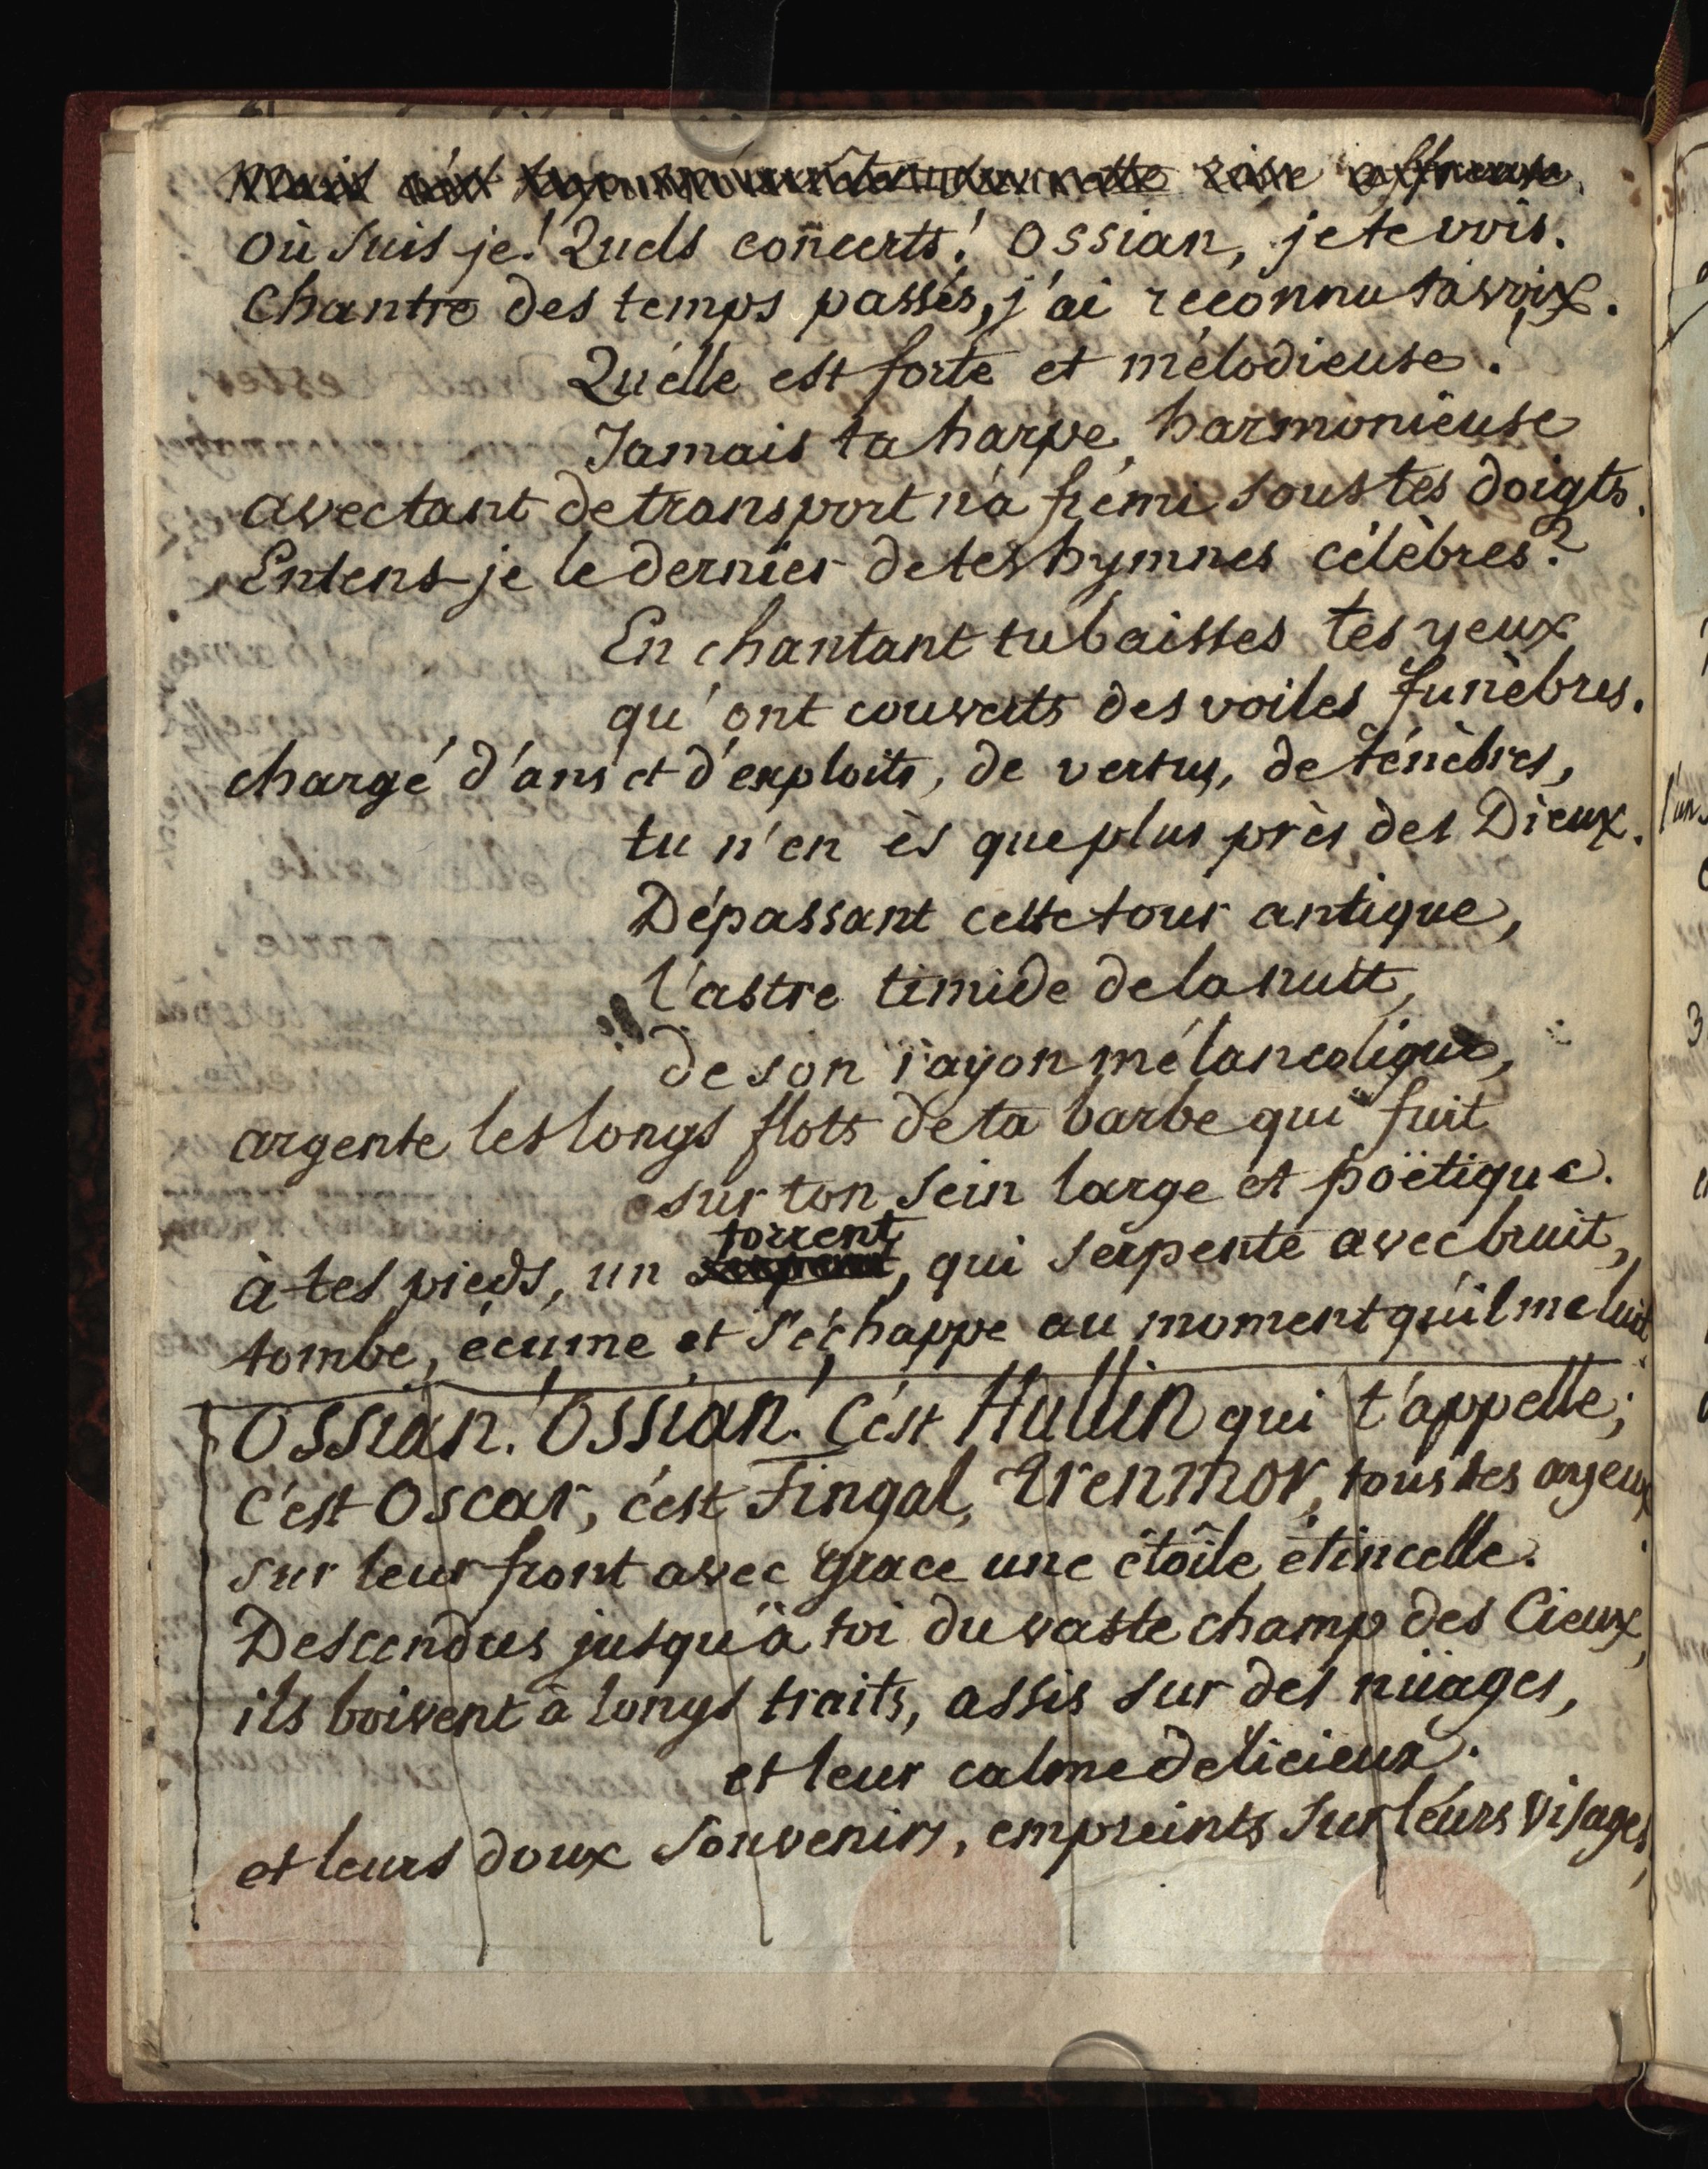 Mais rive affreuse
où suis je! Quels concerts! Ossian, je te vois.
Chantre des temps passés, j'ai reconnu ta voix.
Qu'elle est forte et mélodieuse!
Jamais ta harpe harmonieuse
avec tant de transport n'a frémi sous tes doigts.
Entens-je le dernier de tes hymnes célèbres?
En chantant tu baisses tes yeux
qu'ont couverts des voiles funèbres.
chargé d'ans et d'exploits, de vertus, de ténèbres,
tu n'en ès que plus près des Dieux.
Dépassant cette tour antique,
l'astre timide de la nuit,
de son rayon mélancolique,
argente les longs flots de ta barbe qui fuit
sur ton sein large et poëtique.
torrent
à tes pieds, un serpent, qui serpente avec bruit,
tombe, écume et s'échappe au moment qu'il me luit.
Ossian! Ossian! C'est Hullin qui t'appelle;
c'est Oscar, c'est Fingal, Trenmor, tous tes ayeux
sur leur front avec grace une étoîle étincelle.
Descendus jusqu'à toi du vaste champ des Cieux,
ils boivent à longs traits, assis sur des nüages,
et leur calme délicieux.
et leurs doux souvenirs, empreints sur leurs visages,